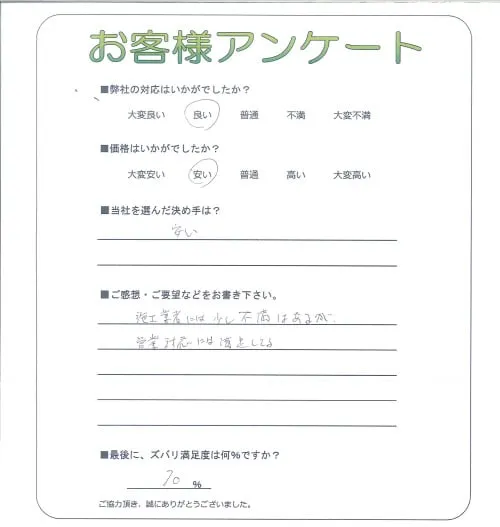 お客様アンケート
■弊社の対応はいかがでしたか？
大変良い 良い 普通 不満 大変不満
■価格はいかがでしたか？
大変安い 安い 普通 高い 大変高い
■当社を選んだ決め手は？
安い
■ご感想・ご要望などをお書き下さい。
施工業者には少し不満はあるが、
営業対応には満足してる
■最後に、ズバリ満足度は何%ですか？
70 %
ご協力頂き、誠にありがとうございました。